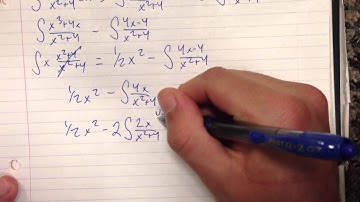 ∫ x³+4x/x²+4 − ∫ 4x-4/x²+4
∫x x²+4/x²+4 = 1/2x² − ∫ 4x-4/x²+4
1/2x² − ∫ 4x/x²+4
1/2x² − 2∫ 2x/x²+4